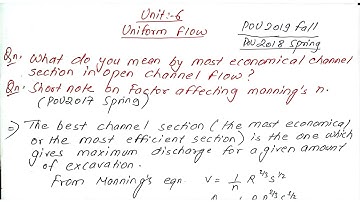 Unit:-6
Uniform Flow
POU 2019 fall
POU 2018 Spring
Qn. What do you mean by most economical channel
section in open channel flow?
Qn. Short note on Factor affecting manning's n.
(POU2017 Spring)
=) The best channel section (the most economical
or the most efficient section) is the one which
gives maximum discharge for a given amount
of excavation.
From Manning's eqn V = 1/n R^2/3 S^1/2